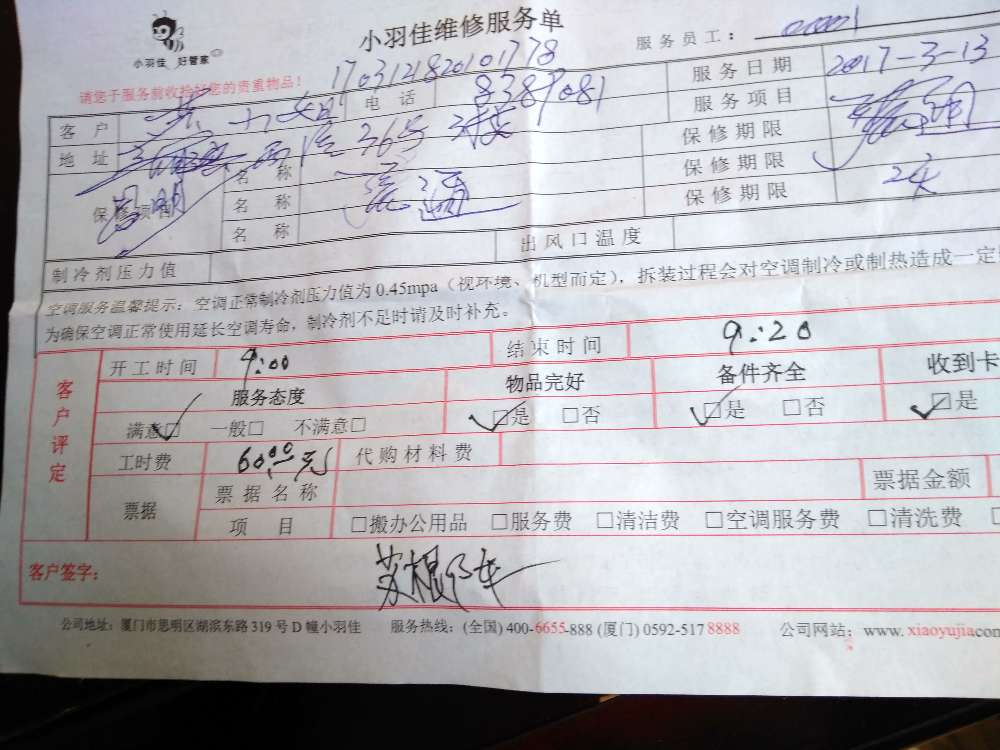 小羽佳 好管家
小羽佳维修服务单
服务员工： 00001
请您于服务前收拾好您的贵重物品！
1703121820101778
客户 电话 8387081 服务日期 2017-3-13
地址 365号 服务项目
保修项目 名称 保修期限
名称 保修期限
名称 保修期限
制冷剂压力值 出风口温度
空调服务温馨提示：空调正常制冷剂压力值为0.45mpa（视环境、机型而定），拆装过程会对空调制冷或制热造成一定
为确保空调正常使用延长空调寿命，制冷剂不足时请及时补充。
客户评定
开工时间 9:00 结束时间 9:20
服务态度 物品完好 备件齐全 收到卡
满意□ 一般□ 不满意□ □是 □否 □是 □否 □是
工时费 60.00元 代购材料费
票据 票据名称 票据金额
项目 □搬办公用品 □服务费 □清洁费 □空调服务费 □清洗费
客户签字：
公司地址：厦门市思明区湖滨东路319号D幢小羽佳 服务热线：(全国) 400-6655-888 (厦门) 0592-5178888 公司网站：www.xiaoyujia.com